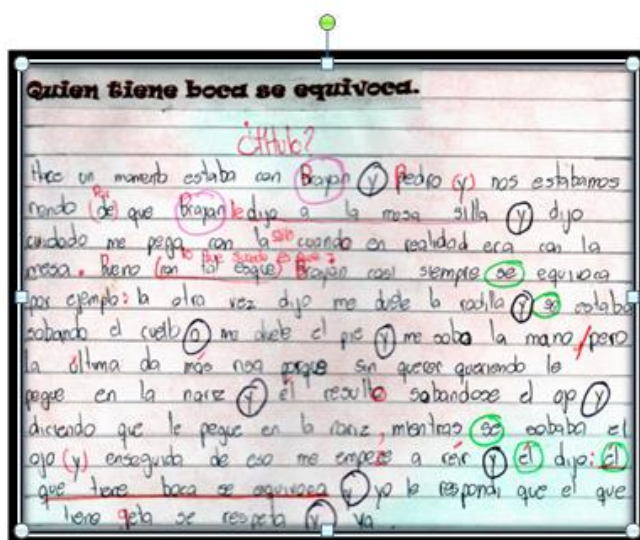 Quien tiene boca se equivoca.
¿título?
Hace un momento estaba con Brayan y Pedro (y) nos estabamos
riendo (de) Por que Brayan le dijo a la mesa silla y dijo
cuidado me pega con la silla cuando en realidad era con la
mesa. Bueno (con tal esque) lo que sucede es que Brayan casi siempre se equivoca
por ejemplo: la otra vez dijo me duele la rodilla y se estaba
sobando el cuello o me duele el pie y me soba la mano / pero
la última da más risa porque sin querer queriendo le
pegue en la nariz y él resulto sabandose el ojo y
diciendo que le pegue en la nariz, mientras se sobaba el
ojo (y) enseguida de eso me empeze a reír y él dijo: él
que tiene boca se equivoca y yo le respondi que el que
tiene geta se respeta y ya.